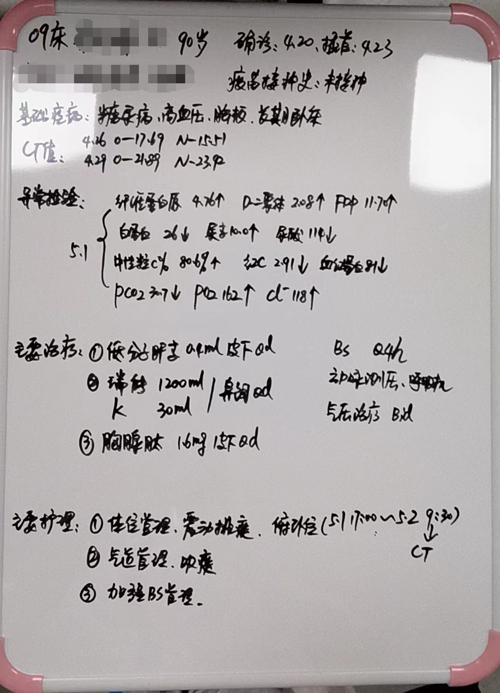 09床 90岁 确诊:4.20、插管:4.23
疫苗接种史:未接种
基础疾病:糖尿病、高血压、脑梗、长期卧床
CT值: 4.26 O-17.69 N-15.51
4.29 O-21.89 N-23.92
异常检验: 纤维蛋白原 4.76↑ D-二聚体 2.08↑ FDP 11.70↑
5.1 白蛋白 26↓ 尿素10.0↑ 尿酸 114↓
中性粒C% 80.6%↑ 红C 2.91↓ 血红蛋白81↓
PCO2 30.7↓ PO2 162↑ Cl⁻ 118↑
主要治疗:①低分子肝素 0.4ml 皮下 Qd
BS Q4h
②瑞能 1200ml / 鼻饲 Qd
K 30ml
动脉测压、呼吸机
气压治疗 Bid
③胸腺肽 1.6mg 皮下 Qd
主要护理:①体位管理、震动排痰、俯卧位(5.1 17:00~5.2 9:30)
↓
CT
②气道管理、吸痰
③加强BS管理.